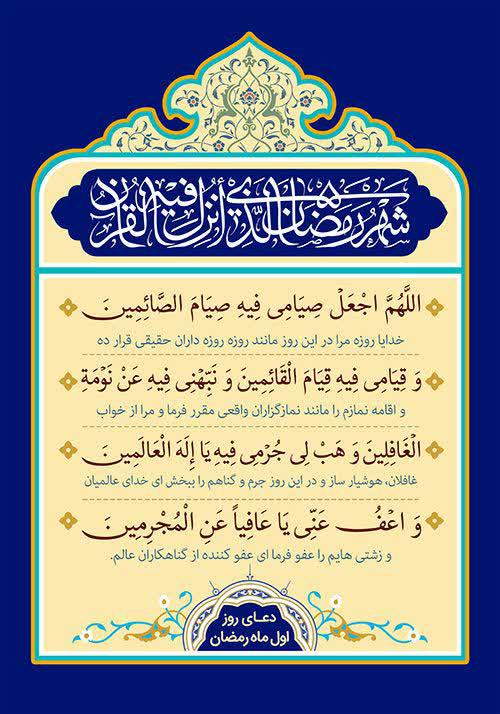 شهر رمضان الذی أنزل فیه القرآن
اللَّهُمَّ اجْعَلْ صِيَامِی فِيهِ صِيَامَ الصَّائِمِينَ
خدایا روزه مرا در این روز مانند روزه روزه داران حقیقی قرار ده
وَ قِيَامِی فِيهِ قِيَامَ الْقَائِمِينَ وَ نَبِّهْنِی فِيهِ عَنْ نَوْمَةِ
و اقامه نمازم را مانند نمازگزاران واقعی مقرر فرما و مرا از خواب
الْغَافِلِينَ وَ هَبْ لِی جُرْمِی فِيهِ يَا إِلَهَ الْعَالَمِينَ
غافلان، هوشیار ساز و در این روز جرم و گناهم را ببخش ای خدای عالمیان
وَ اعْفُ عَنِّی يَا عَافِياً عَنِ الْمُجْرِمِينَ
و زشتی هایم را عفو فرما ای عفو کننده از گناهکاران عالم.
دعای روز
اول ماه رمضان